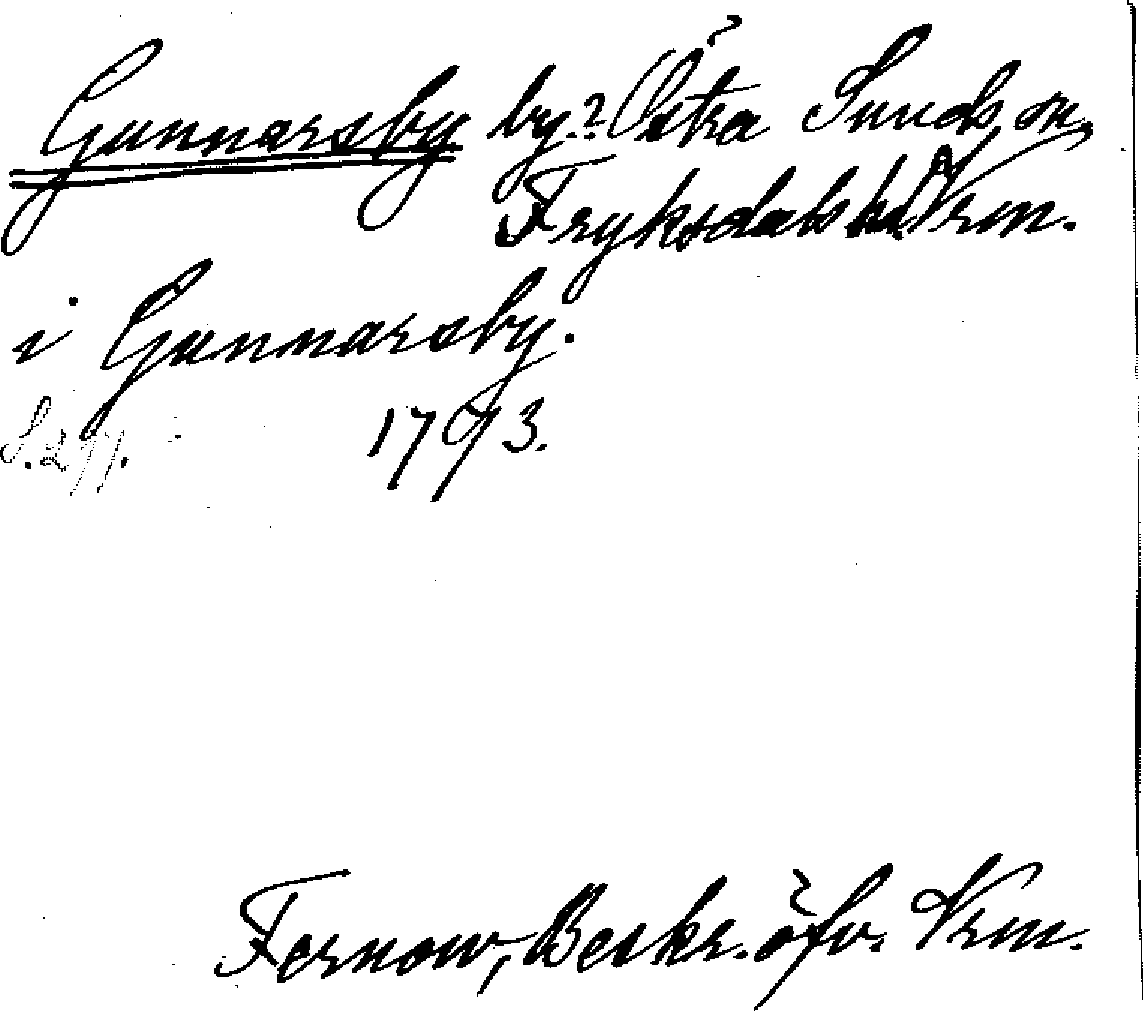 Gunnarsby by? Östra Sunds sn,
Fryksdals hd Vrm.
i Gunnarsby.
S. 277. 1773.
Fernow, Beskr. öfv. Vrm.